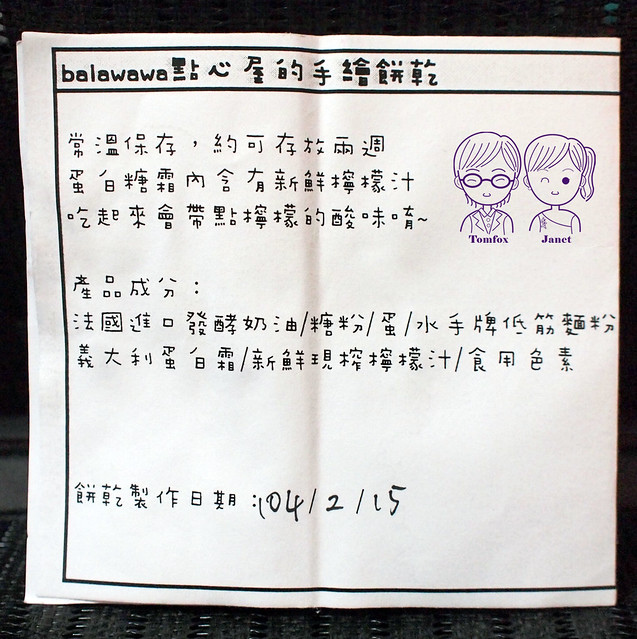 balawawa點心屋的手繪餅乾
常溫保存，約可存放兩週
蛋白糖霜內含有新鮮檸檬汁
吃起來會帶點檸檬的酸味唷~
Tomfox
Janet
產品成分：
法國進口發酵奶油/糖粉/蛋/水手牌低筋麵粉
義大利蛋白霜/新鮮現榨檸檬汁/食用色素
餅乾製作日期：104/2/15